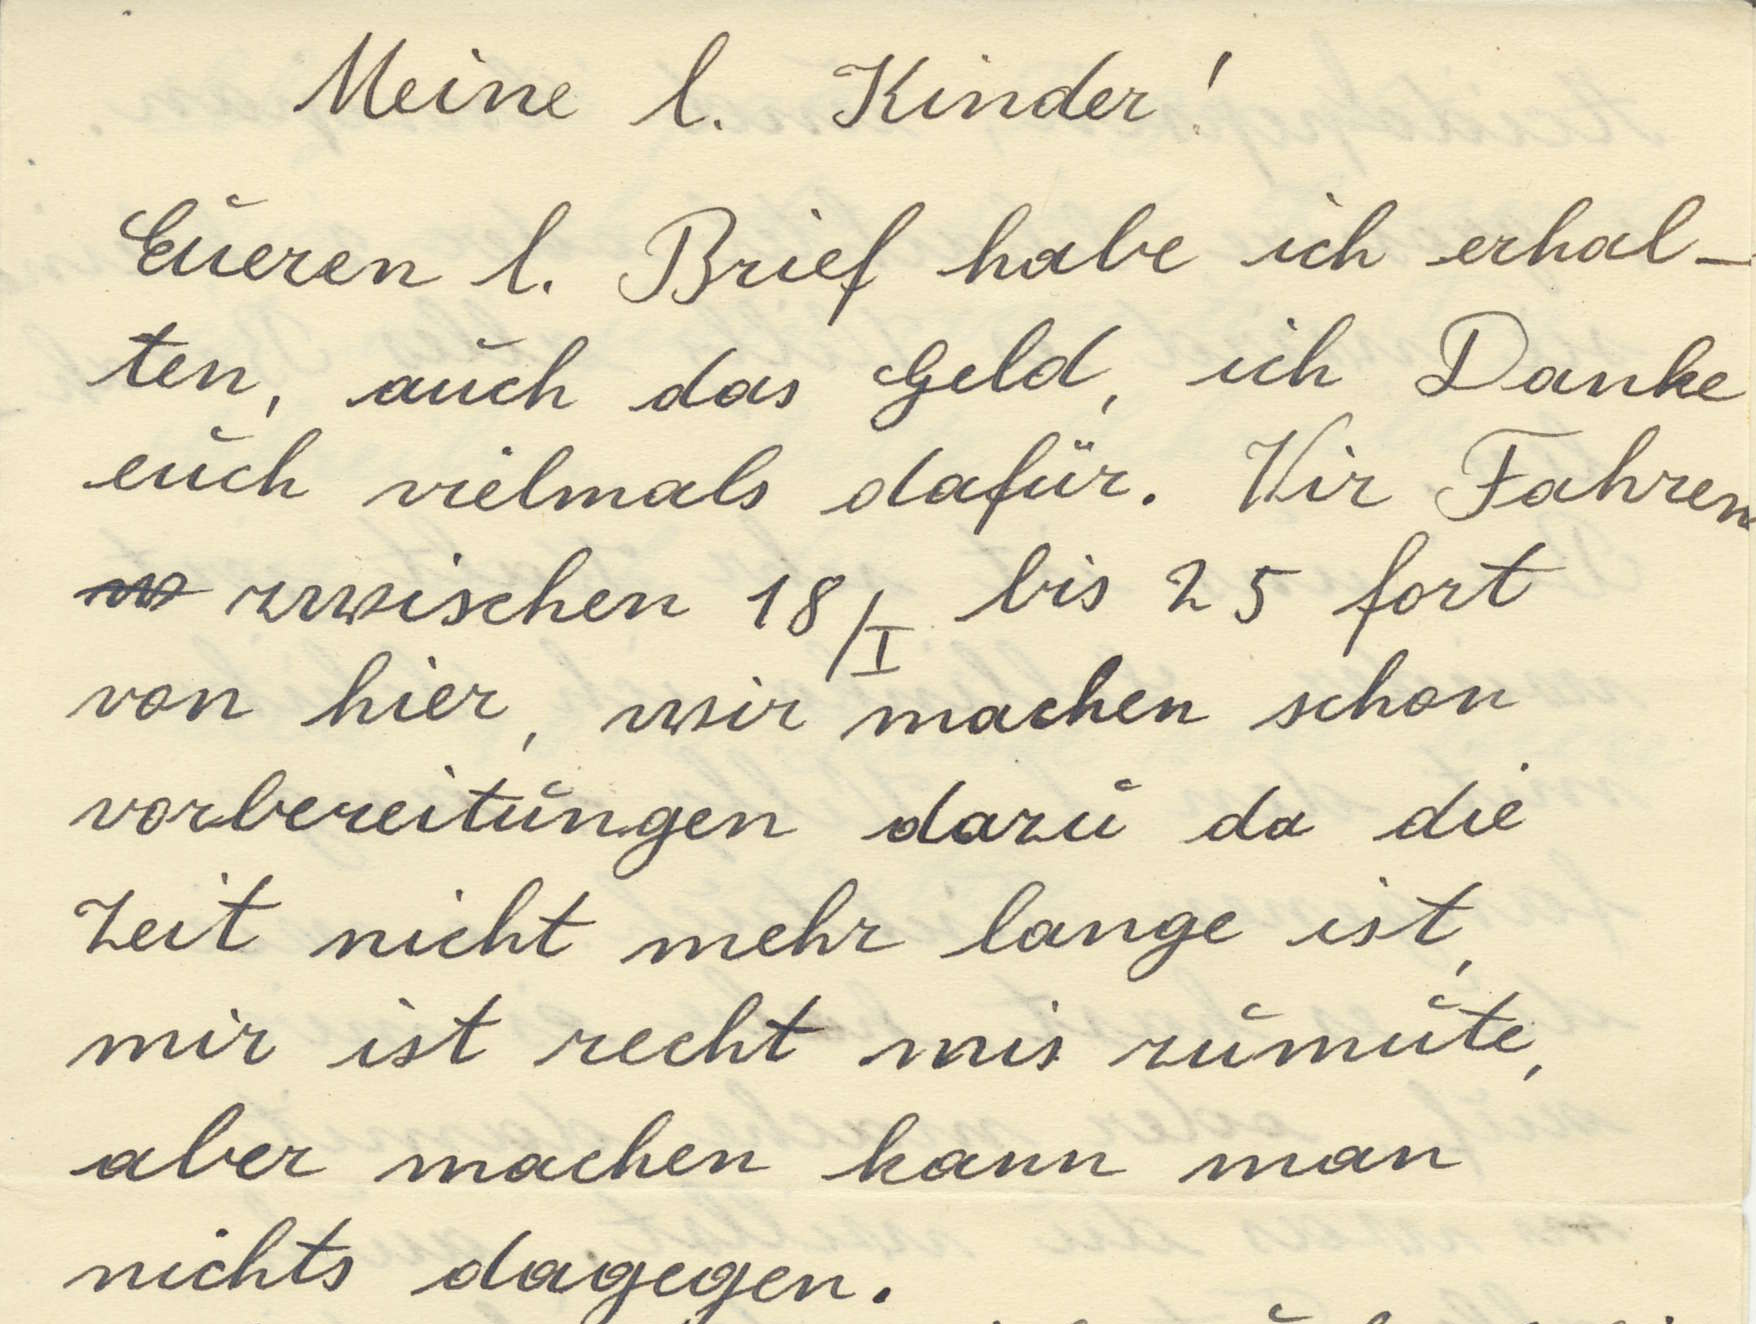 Meine l. Kinder!
Eueren l. Brief habe ich erhal-
ten, auch das Geld, ich Danke
euch vielmals dafür. Wir Fahren
zwischen 18/I bis 25 fort
von hier, wir machen schon
vorbereitungen dazu da die
Zeit nicht mehr lange ist,
mir ist recht mis zumute,
aber machen kann man
nichts dagegen.